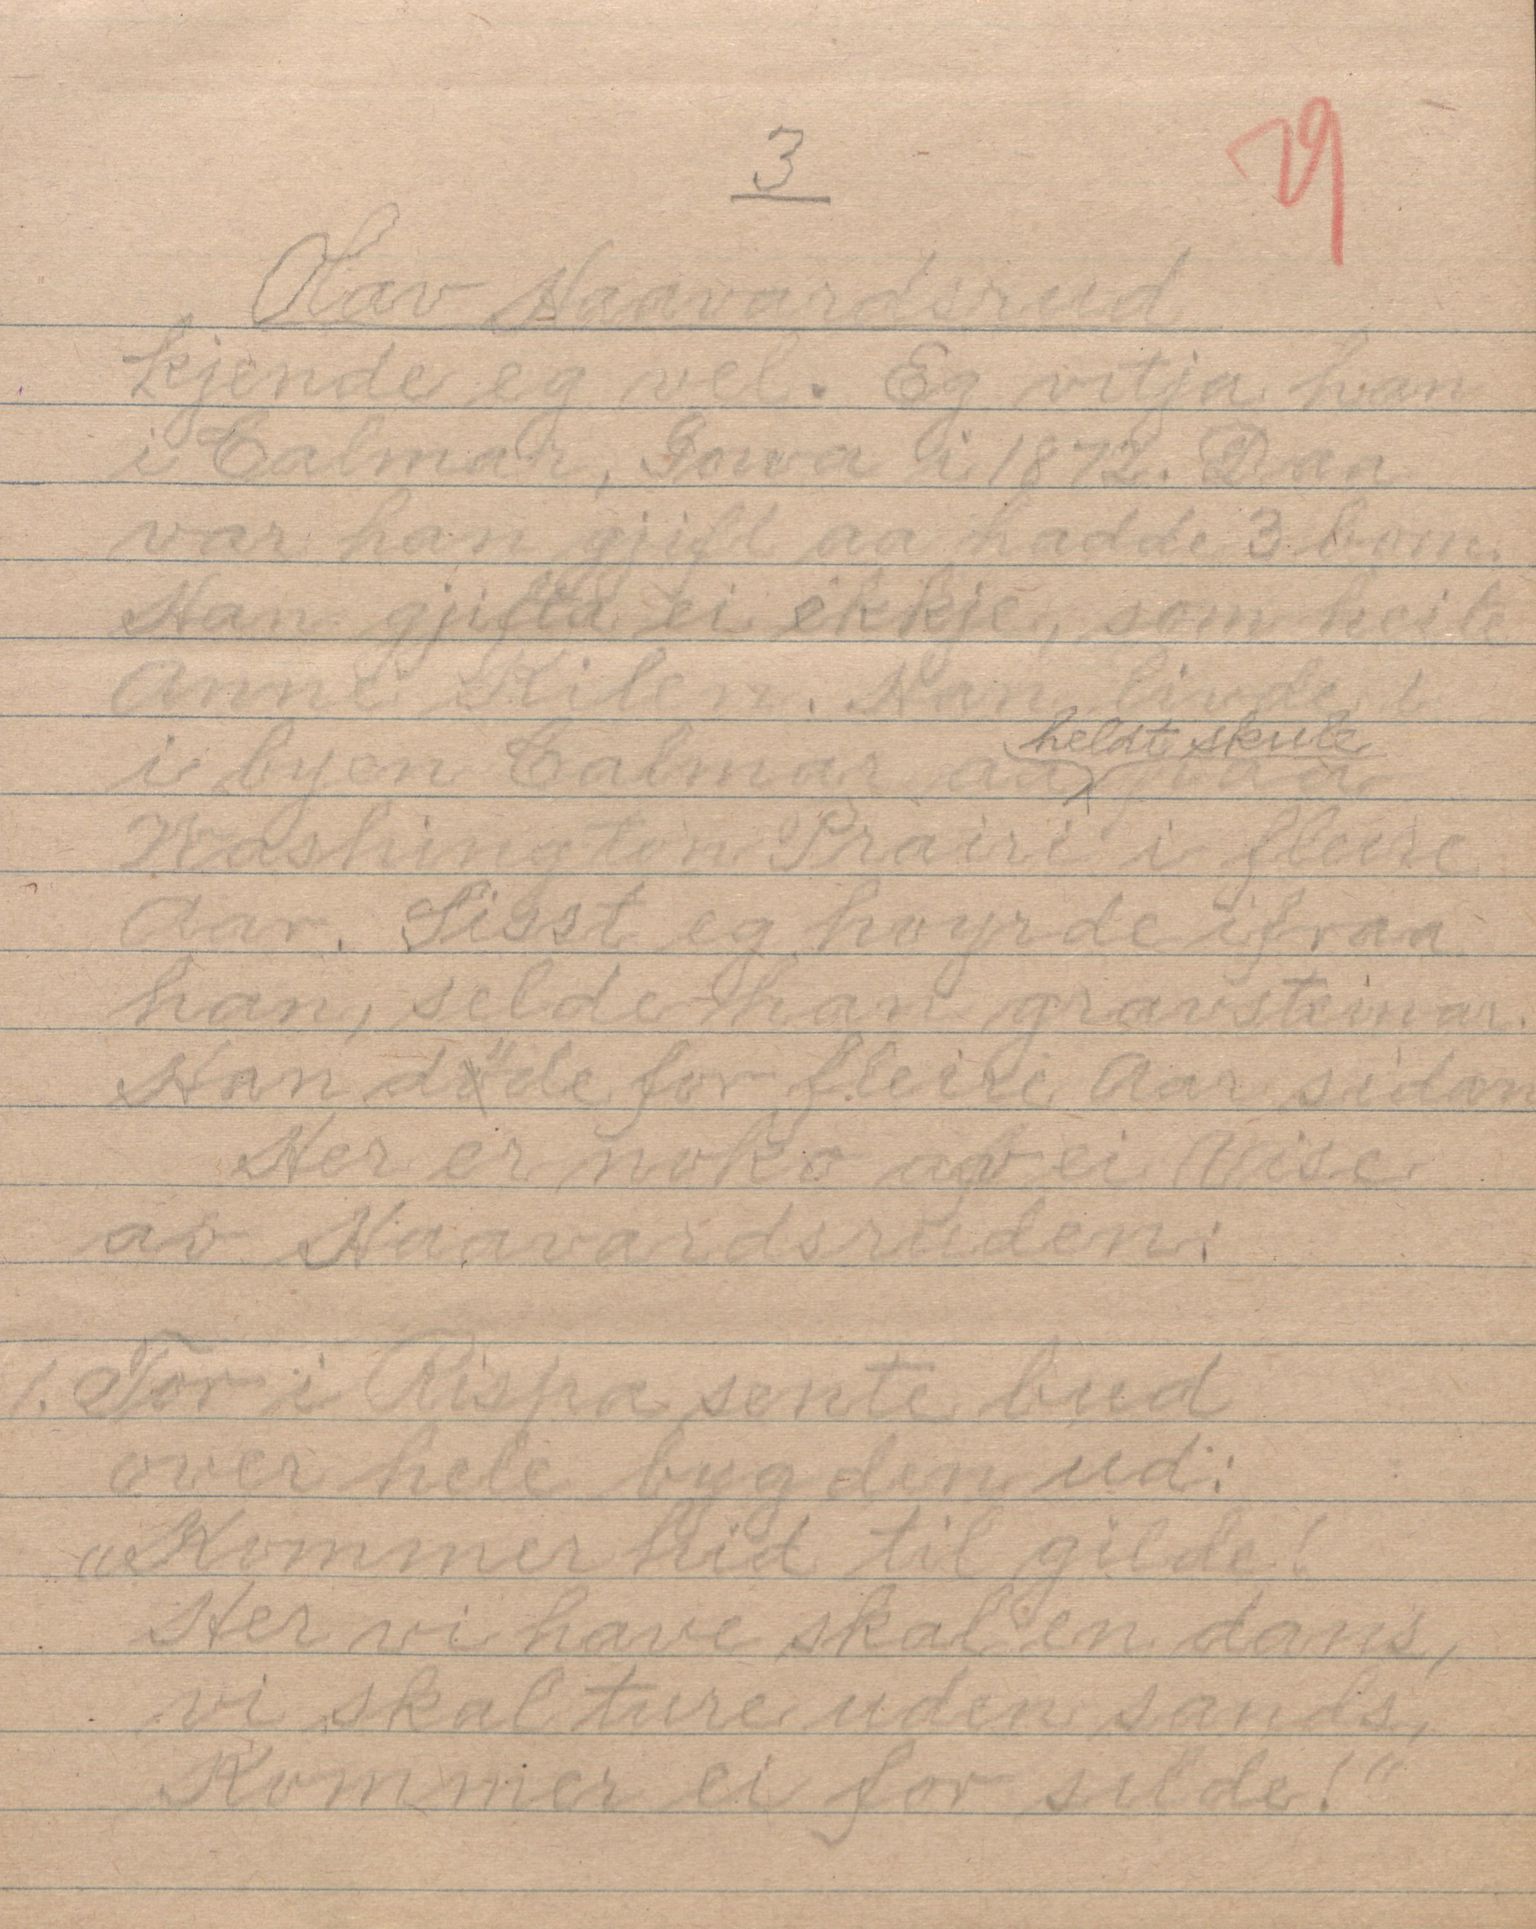 3
29
Olav Haavardsrud
kjende eg vel. Eg vitja han
i Calmar, Iowa i 1872. Daa
var han gjift aa hadde 3 born.
Han gjifta ei ekkje, som heite
Anne Kilen. Han livde i
i byen Calmar aa heldt skule paa
Washington Prairi i fleire
Aar. Sisst eg høyrde ifraa
han, selde han gravsteinar.
Han döde for fleire Aar sidan
Her er noko av ei Vise
av Haavardsruden:
1. Tor i Rispa sente bud
over hele bygden ud:
„Kommer hid til gilde!
Her vi have skal en dans,
vi skal ture uden sands,
Kommer ei for silde!"